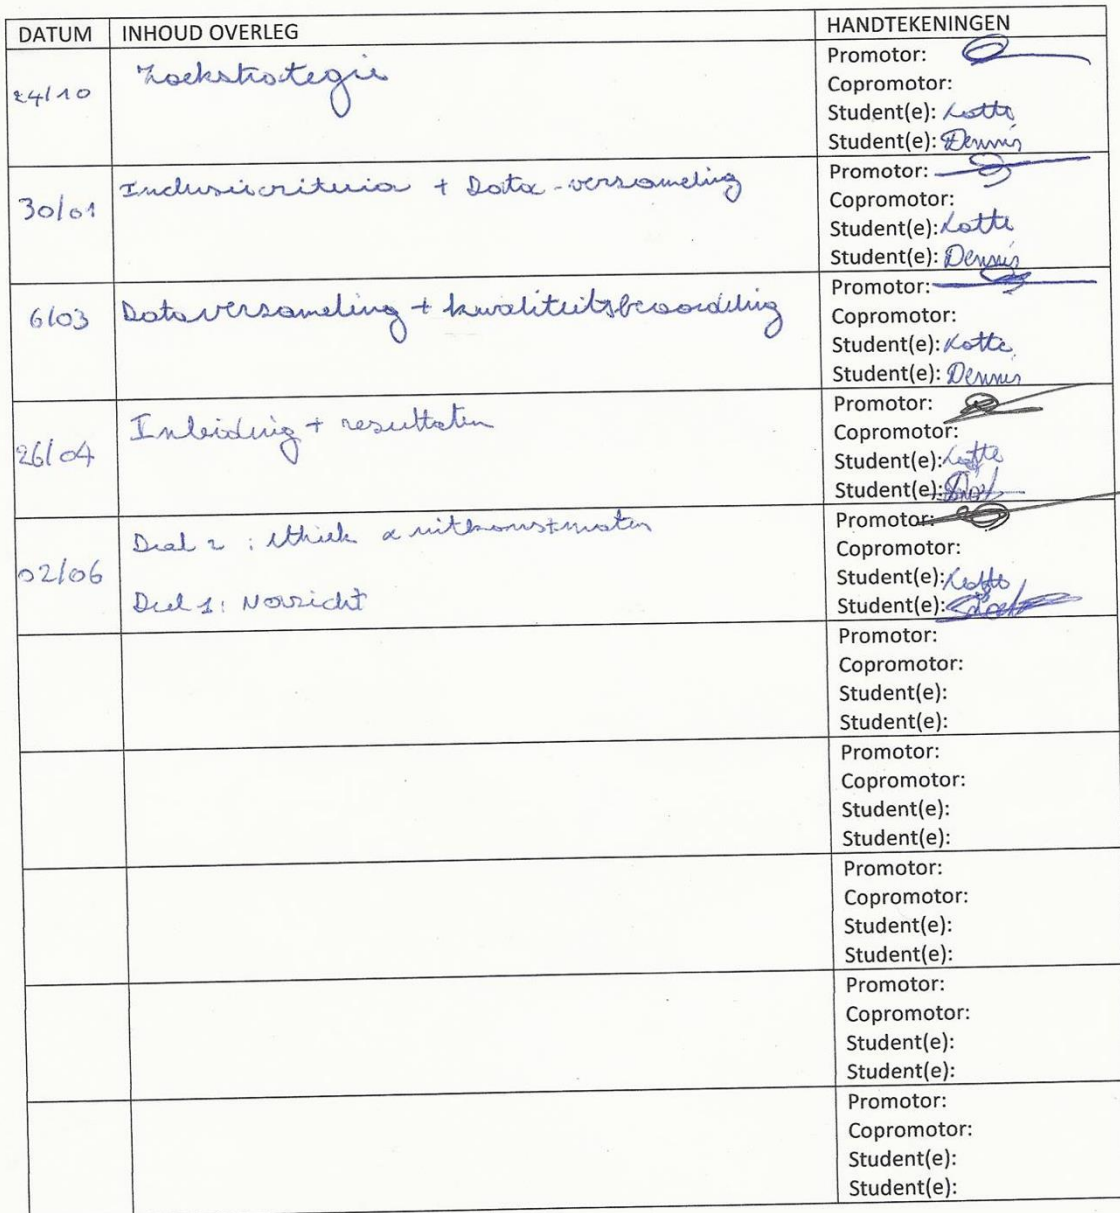 DATUM INHOUD OVERLEG HANDTEKENINGEN
24/10 Zoekstrategie Promotor:
Copromotor:
Student(e): Lotte
Student(e): Dennis
30/01 Inclusiecriteria + Data-versameling Promotor:
Copromotor:
Student(e): Lotte
Student(e): Dennis
6/03 Dataversameling + kwaliteitsbeoordeling Promotor:
Copromotor:
Student(e): Lotte
Student(e): Dennis
26/04 Inleiding + resultaten Promotor:
Copromotor:
Student(e): Lotte
Student(e):
02/06 Deel 2 : ethiek & uitkomstmaten Promotor:
Copromotor:
Deel 1: Student(e): Lotte
Student(e):
Promotor:
Copromotor:
Student(e):
Student(e):
Promotor:
Copromotor:
Student(e):
Student(e):
Promotor:
Copromotor:
Student(e):
Student(e):
Promotor:
Copromotor:
Student(e):
Student(e):
Promotor:
Copromotor:
Student(e):
Student(e):